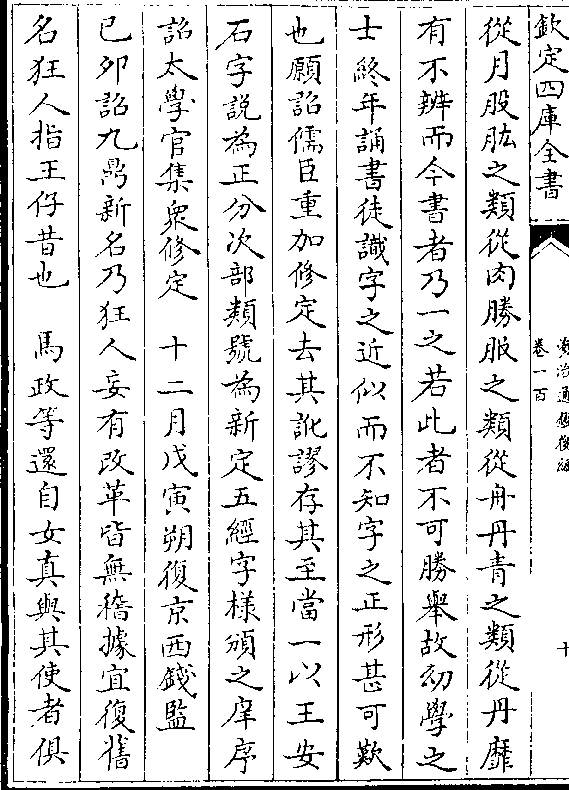 欽定四庫全書
資治通鑑後編
卷一百
十
從月股肱之類從肉勝服之類從舟丹青之類從丹靡
有不辨而今書者乃一之若此者不可勝舉故幼學之
士終年誦書徒識字之近似而不知字之正形甚可歎
也願詔儒臣重加修定去其訛謬存其至當一以王安
石字說為正分次部類號為新定五經字様頒之庠序
詔太學官集衆修定　十二月戊寅朔復京西錢監
己夘詔九鼎新名乃狂人妄有改革皆無稽據宜復舊
名狂人指王仔昔也　馬政等還自女真與其使者俱